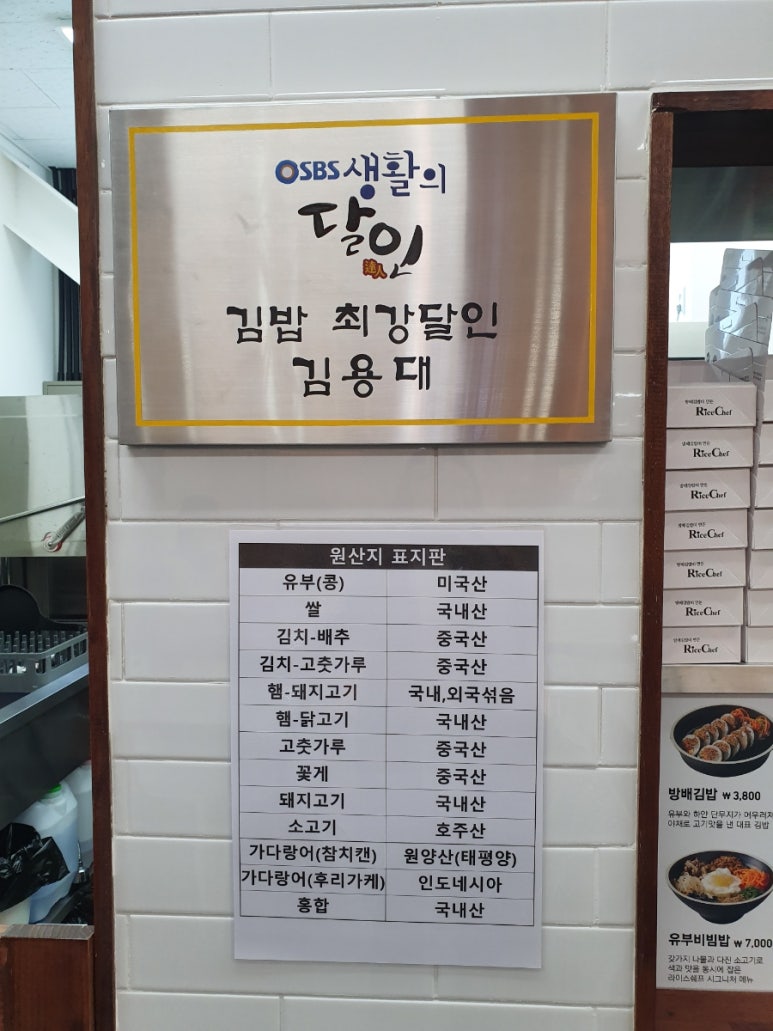 SBS 생활의
달인
達人
김밥 최강달인
김용대
원산지 표지판
유부(콩) 미국산
쌀 국내산
김치-배추 중국산
김치-고춧가루 중국산
햄-돼지고기 국내,외국섞음
햄-닭고기 국내산
고춧가루 중국산
꽃게 중국산
돼지고기 국내산
소고기 호주산
가다랑어(참치캔) 원양산(태평양)
가다랑어(후리가케) 인도네시아
홍합 국내산
방배김밥이 만든
RiceChef
방배김밥이 만든
RiceChef
방배김밥이 만든
RiceChef
방배김밥이 만든
RiceChef
방배김밥이 만든
RiceChef
방배김밥이 만든
RiceChef
방배김밥이 만든
RiceChef
방배김밥 ₩3,800
유부와 하얀 단무지가 어우러져
야채로 고기맛을 낸 대표 김밥
유부비빔밥 ₩7,000
갖가지 나물과 다진 소고기로
색과 맛을 동시에 잡은
라이스쉐프 시그니처 메뉴